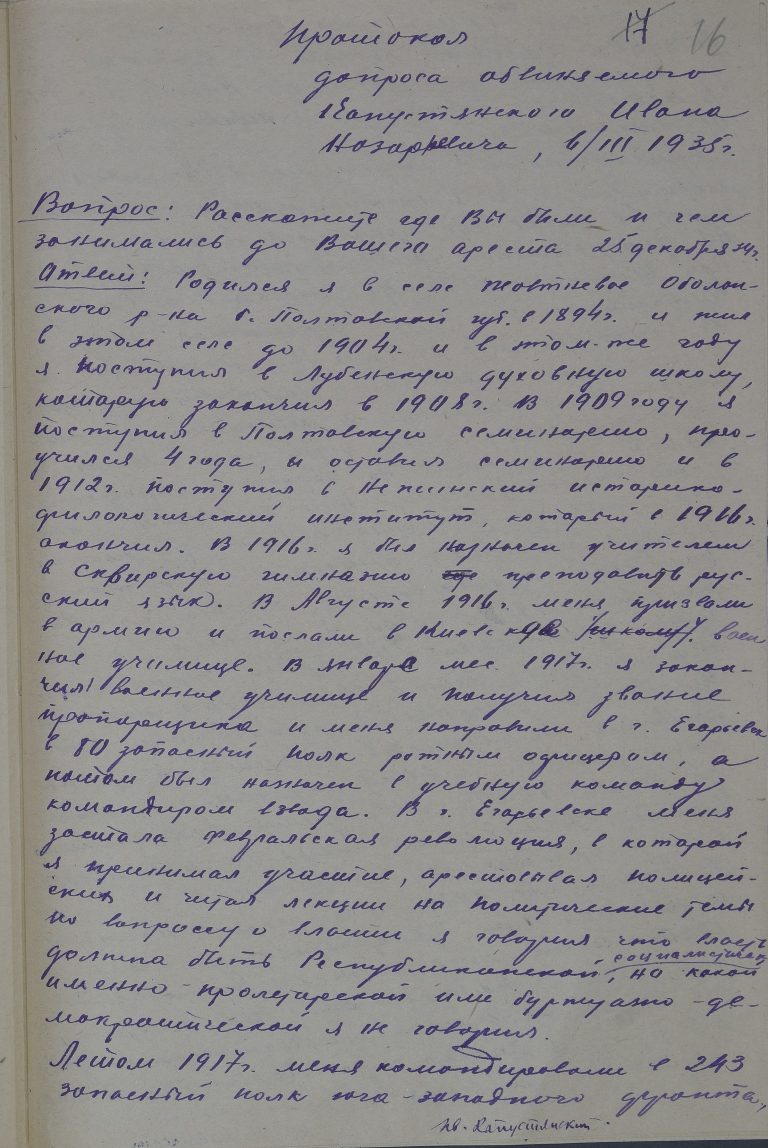 17 16
Протокол
допроса обвиняемого
Капустянского Ивана
Назарьевича, 6/III 1935г.
Вопрос: Расскажите где Вы были и чем
занимались до Вашего ареста 25 декабря 34г.
Ответ: Родился я в селе Жовтневое Оболон-
ского р-на б. Полтавской губ. в 1894г. и жил
в этом селе до 1904г. и в этом-же году
я поступил в Лубенскую духовную школу,
которую закончил в 1908г. В 1909 году я
поступил в Полтавскую семинарию, про-
учился 4 года, и оставил семинарию и в
1912г. поступил в Нежинский историко-
филологический институт, который в 1916г.
окончил. В 1916г. я был назначен учителем
в Сквирскую гимназию преподавать рус-
ский язык. В Августе 1916г. меня призвали
в армию и послали в Киевское воен
ное училище. В январе мес. 1917г. я закон-
чил военное училище и получил звание
прапорщика и меня направили в г. Егорьевск
в 80 запасный полк ротным офицером, а
потом был назначен в учебную команду
командиром взвода. В г. Егорьевске меня
застала Февральская революция, в которой
я принимал участие, арестовывал полицей-
ских и читал лекции на политические темы
по вопросу о власти я говорил что власть
должна быть Республиканской, социалистическ но какой
именно-пролетарской или буржуазно-де-
мократической я не говорил.
Летом 1917г. меня командировали в 243
запасный полк юго-западного фронта,
Ив. Капустянский